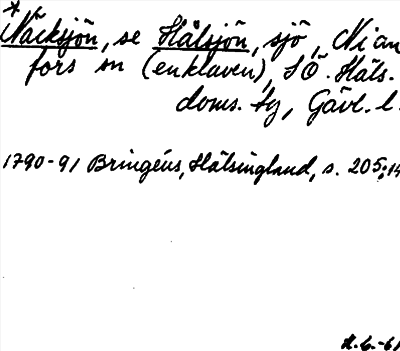 *Näcksjön, se Hålsjön, sjö, Nian
fors sn (enklaven), SÖ. Häls.
doms. tg, Gävl. l.
1790-91 Bringéus, Hälsingland, s. 205:14
H.G.-61